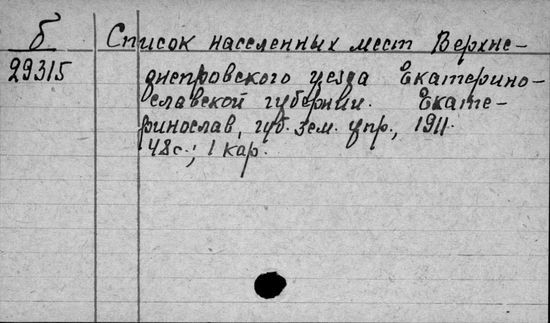 б
29315
Список населенных мест Верхне-
днепровского уезда Екатерино-
славской губернии. Екате-
ринослав, губ. зем. упр., 1911.
48с.; 1 кар.